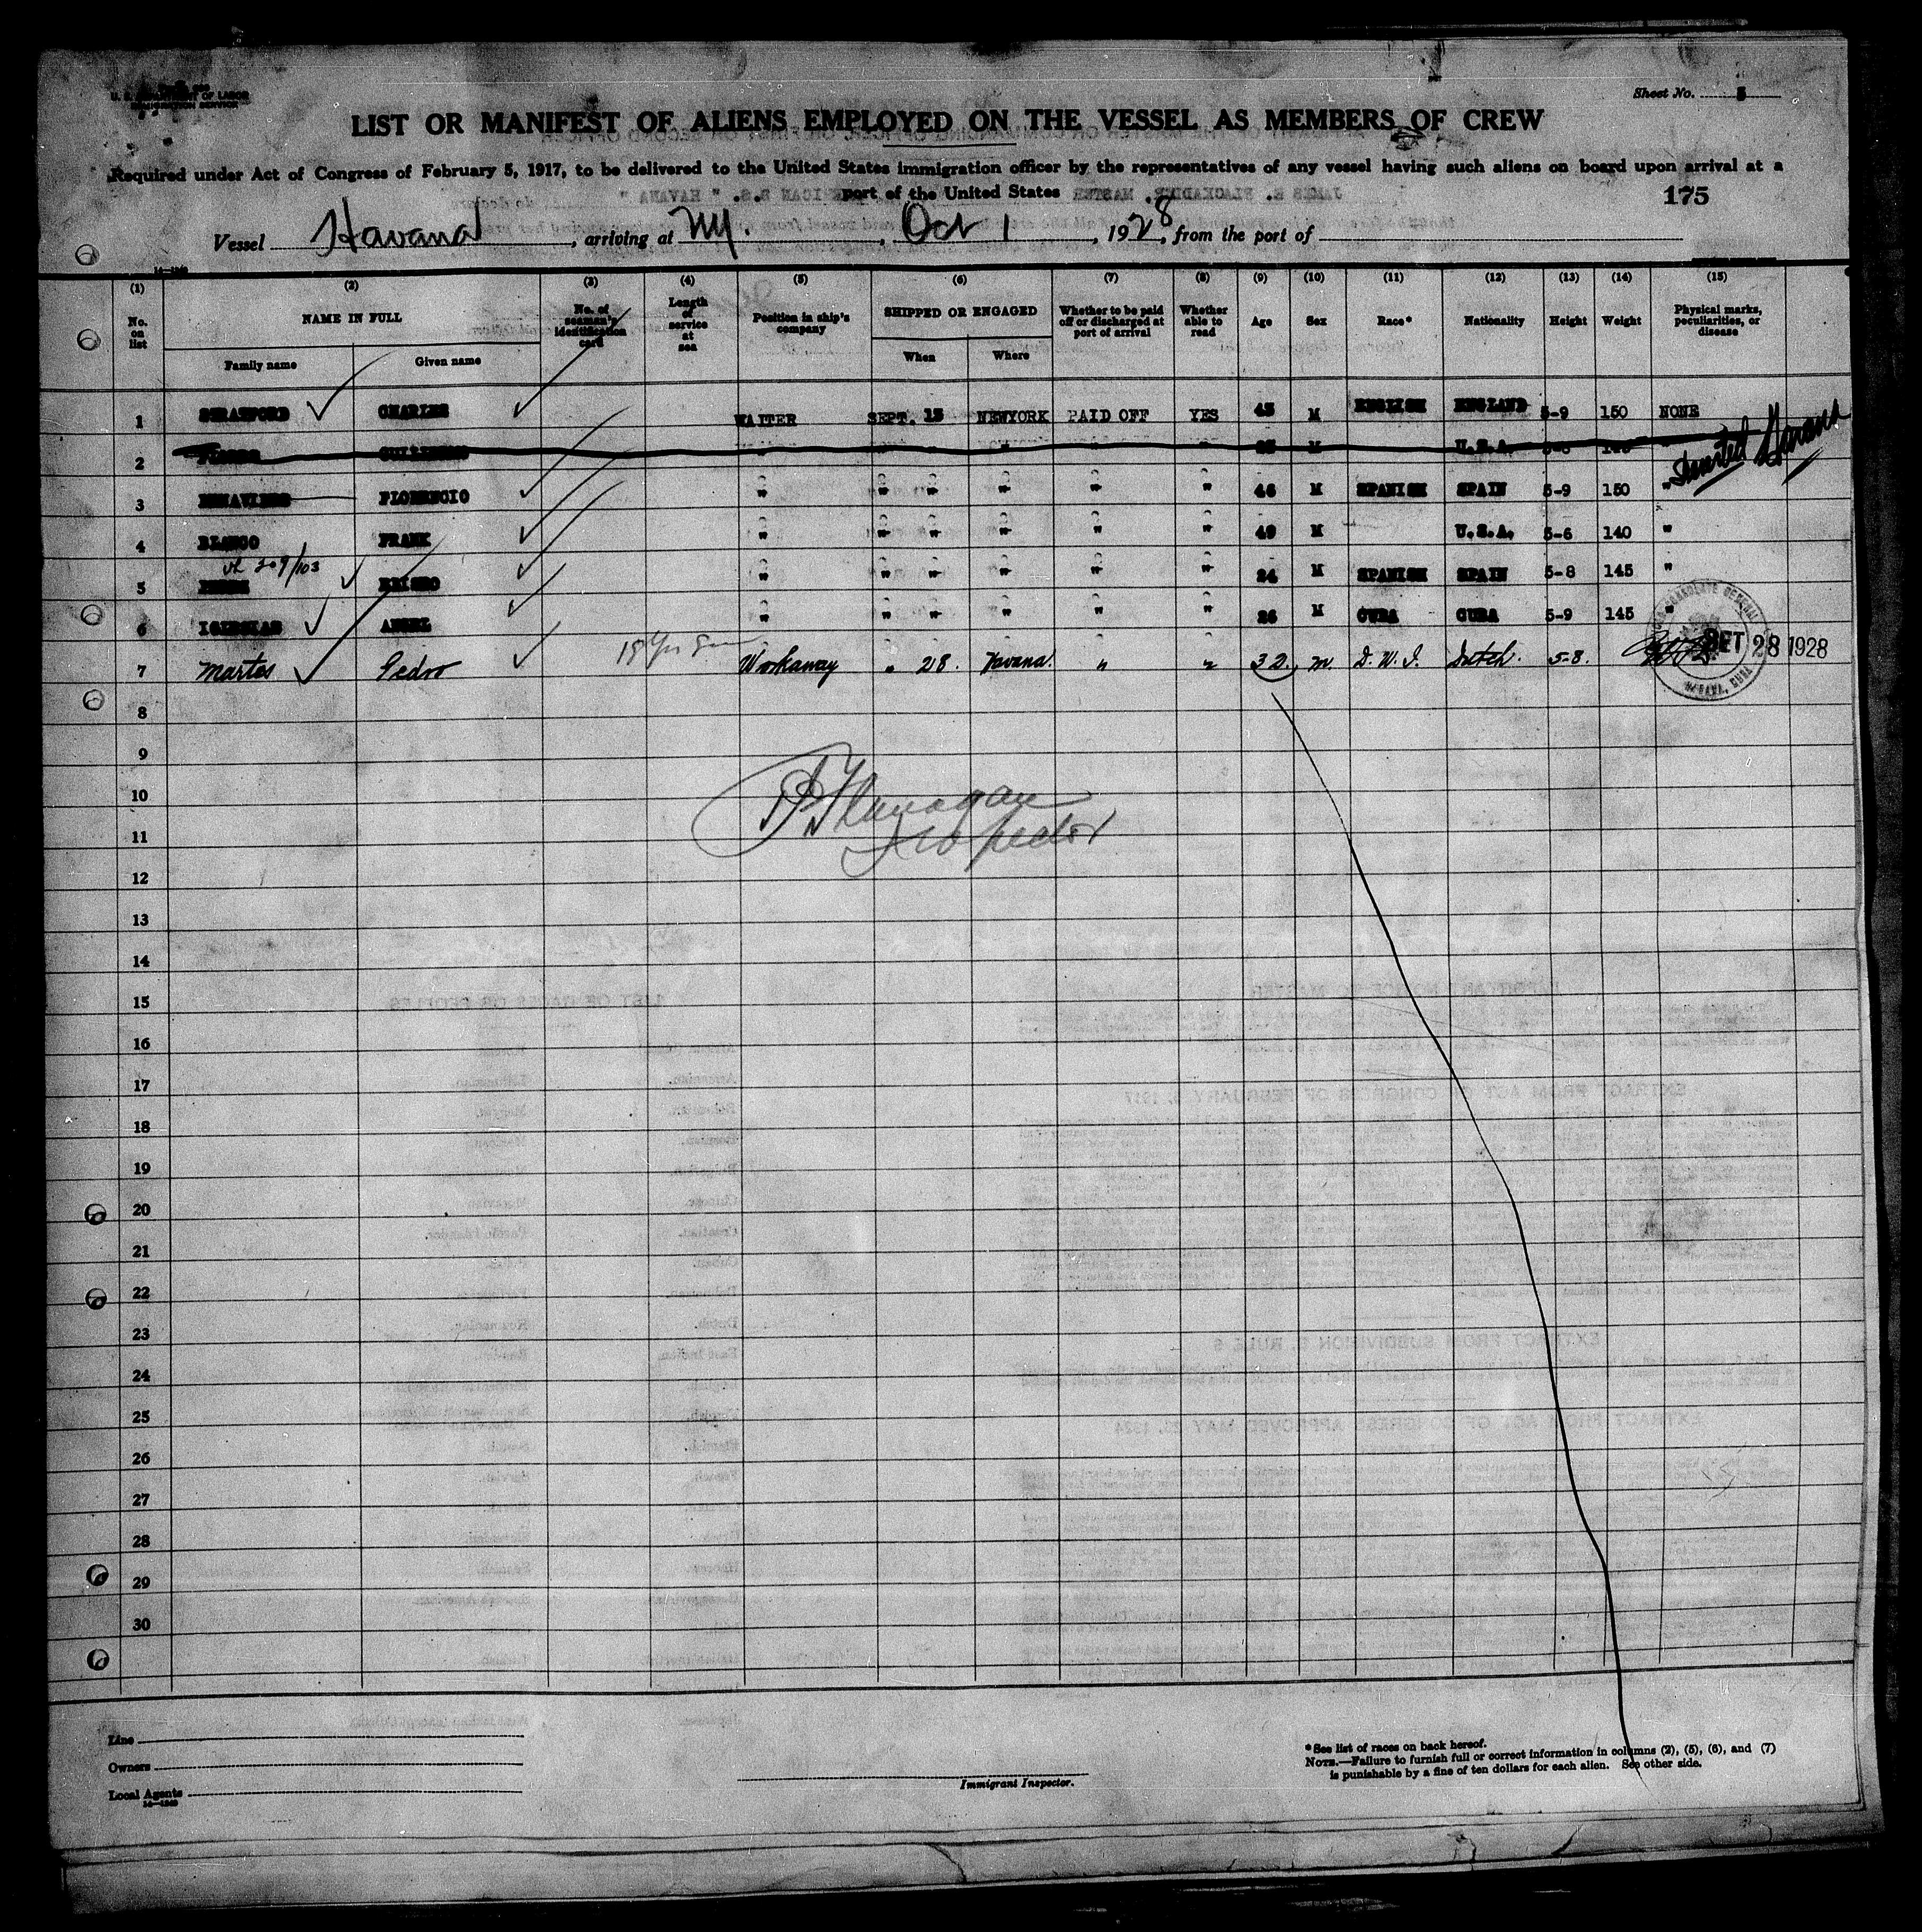 U. S. DEPARTMENT OF LABOR
IMMIGRATION SERVICE
Sheet No. 5
LIST OR MANIFEST OF ALIENS EMPLOYED ON THE VESSEL AS MEMBERS OF CREW
Required under Act of Congress of February 5, 1917, to be delivered to the United States immigration officer by the representatives of any vessel having such aliens on board upon arrival at a
port of the United States
175
Vessel Havana, arriving at NY., Oct 1, 1928, from the port of
14—1240
(1) (2) (3) (4) (5) (6) (7) (8) (9) (10) (11) (12) (13) (14) (15)
No. on list NAME IN FULL No. of seaman's identification card Length of service at sea Position in ship's company SHIPPED OR ENGAGED Whether to be paid off or discharged at port of arrival Whether able to read Age Sex Race* Nationality Height Weight Physical marks, peculiarities, or disease
Family name Given name When Where
1 STRATFORD CHARLES WAITER SEPT. 15 NEWYORK PAID OFF YES 45 M ENGLISH ENGLAND 5-9 150 NONE
2 M U.S.A. "
Deserted Havana
3 FLORENCIO " " " " " " 46 M SPANISH SPAIN 5-9 150 "
4 BLANCO FRANK " " " " " " 49 M U.S.A. 5-6 140 "
209/103
5 " " " " " " 24 M SPANISH SPAIN 5-8 145 "
6 IGLESIAS ANGEL " " " " " " 26 M CUBA CUBA 5-9 145 "
7 Martes Pedro 18 Yrs Workaway " 28. Havana. " " 32 m. D. W. I. Dutch. 5-8. 28 1928
HAVANA, CUBA
8
9
10
Flanagan
11
Inspector
12
13
14
15
16
17
18
19
20
21
22
23
24
25
26
27
28
29
30
Line
Owners
Local Agents
14—1240
Immigrant Inspector.
*See list of races on back hereof.
NOTE.—Failure to furnish full or correct information in columns (2), (5), (6), and (7)
is punishable by a fine of ten dollars for each alien. See other side.